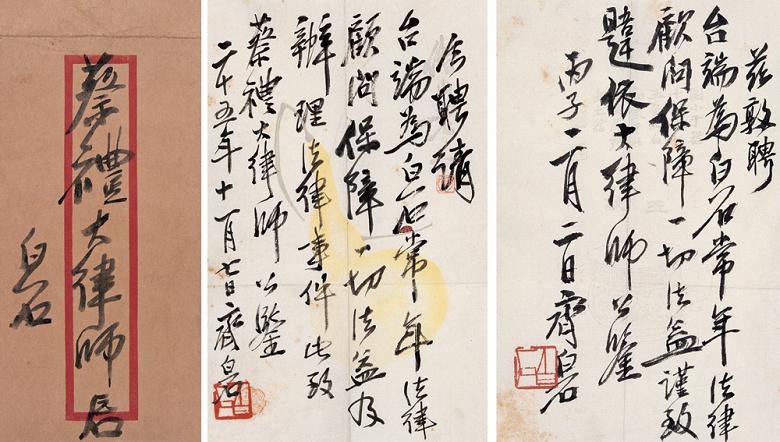 蔡禮大律師启
白石
今聘請
台端為白石常年法律
顧問保障一切法益及
辦理法律事件此致
蔡禮大律師公鑒
二十五年十一月七日齊白石
茲敦聘
台端為白石常年法律
顧問保障一切法益謹致
大律師公鑒
丙子一月二日齊白石